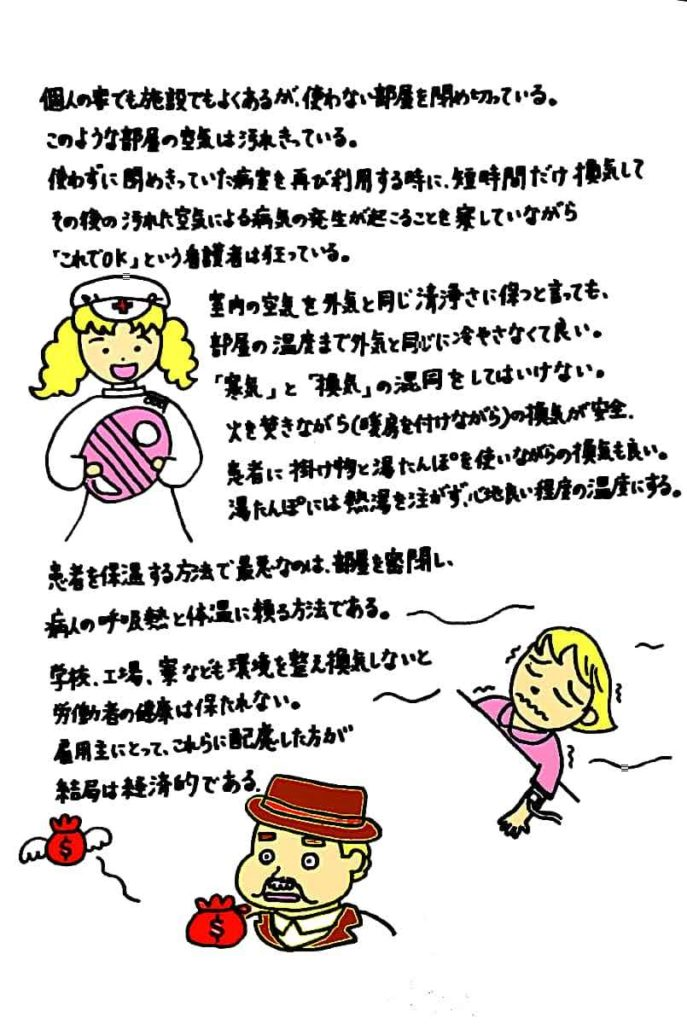 個人の家でも施設でもよくあるが、使わない部屋を閉め切っている。
このような部屋の空気は汚れきっている。
使わずに閉めきっていた病室を再び利用する時に、短時間だけ換気して
その後の汚れた空気による病気の発生が起こることを察していながら
「これでOK」という看護者は狂っている。
室内の空気を外気と同じ清浄さに保つと言っても、
部屋の温度まで外気と同じに冷やさなくて良い。
「寒気」と「換気」の混同をしてはいけない。
火を焚きながら(暖房を付けながら)の換気が安全、
患者に掛け物と湯たんぽを使いながらの換気も良い。
湯たんぽには熱湯を注がず、心地良い程度の温度にする。
患者を保温する方法で最悪なのは、部屋を密閉し、
病人の呼吸熱と体温に頼る方法である。
学校、工場、寮なども環境を整え換気しないと
労働者の健康は保たれない。
雇用主にとって、これらに配慮した方が
結局は経済的である。
$
$